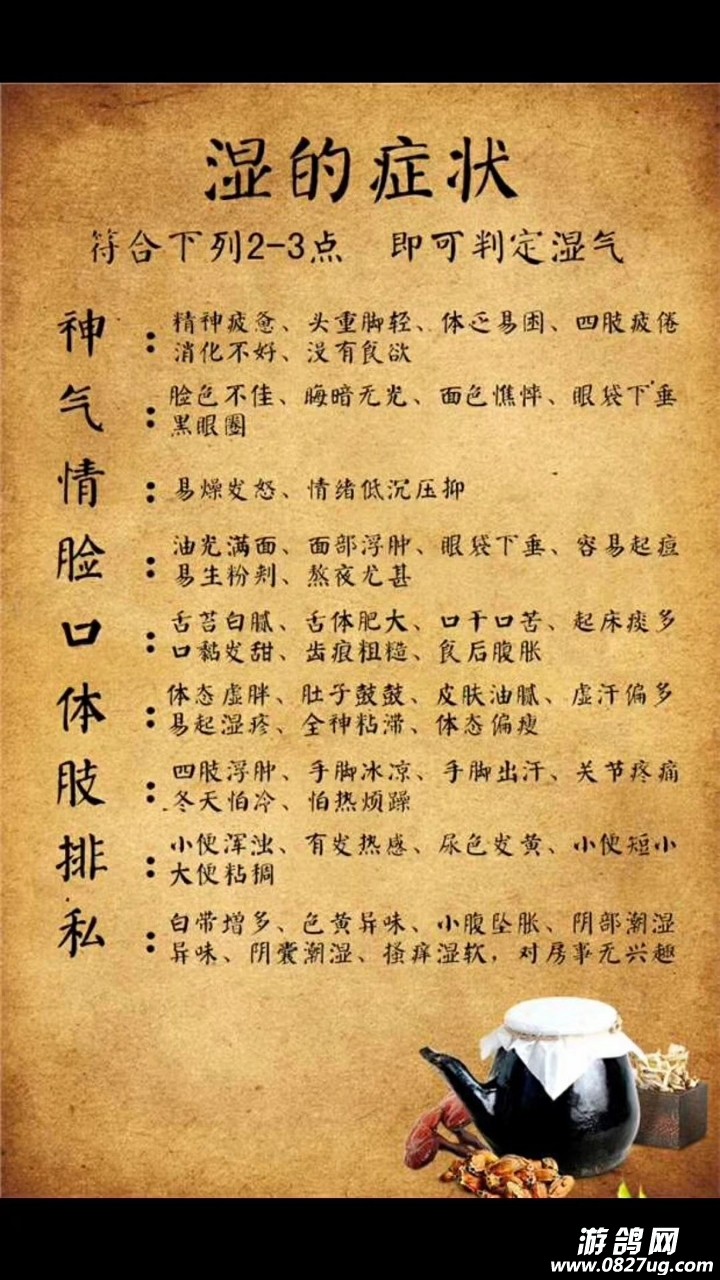 湿的症状
符合下列2-3点 即可判定湿气
神：精神疲惫、头重脚轻、体乏易困、四肢疲倦
消化不好、没有食欲
气：脸色不佳、晦暗无光、面色憔悴、眼袋下垂
黑眼圈
情：易燥发怒、情绪低沉压抑
脸：油光满面、面部浮肿、眼袋下垂、容易起痘
易生粉刺、熬夜尤甚
口：舌苔白腻、舌体肥大、口干口苦、起床痰多
口黏发甜、齿痕粗糙、食后腹胀
体：体态虚胖、肚子鼓鼓、皮肤油腻、虚汗偏多
易起湿疹、全神粘滞、体态偏瘦
肢：四肢浮肿、手脚冰凉、手脚出汗、关节疼痛
冬天怕冷、怕热烦躁
排：小便浑浊、有发热感、尿色发黄、小便短小
大便粘稠
私：白带增多、色黄异味、小腹坠胀、阴部潮湿
异味、阴囊潮湿、搔痒湿软，对房事无兴趣
游鸽网
www.0827ug.com